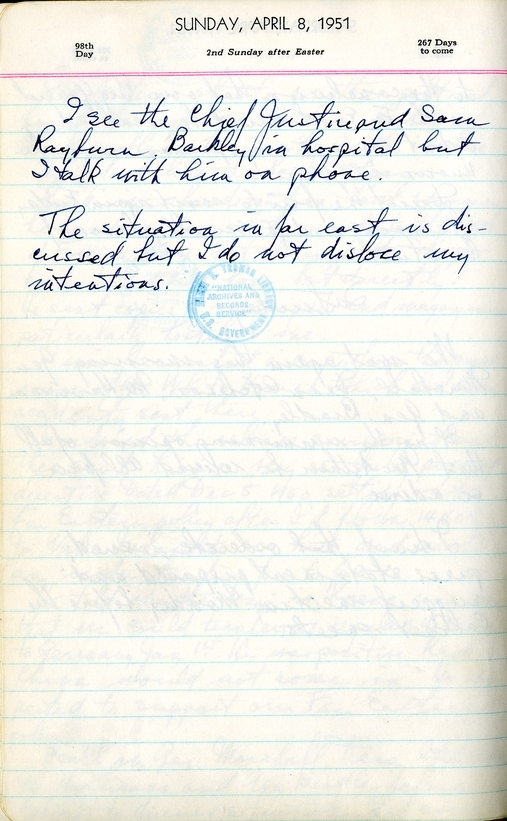 SUNDAY, APRIL 8, 1951
98th
Day
2nd Sunday after Easter
267 Days
to come
I see the Chief Justice and Sam
Rayburn, Barkley in hospital but
I talk with him on phone.
The situation in far east is dis-
cussed but I do not disloce my
intentions.
TRUMAN LIBRARY
"NATIONAL
ARCHIVES AND
RECORDS
SERVICE"
U.S. GOVERNMENT